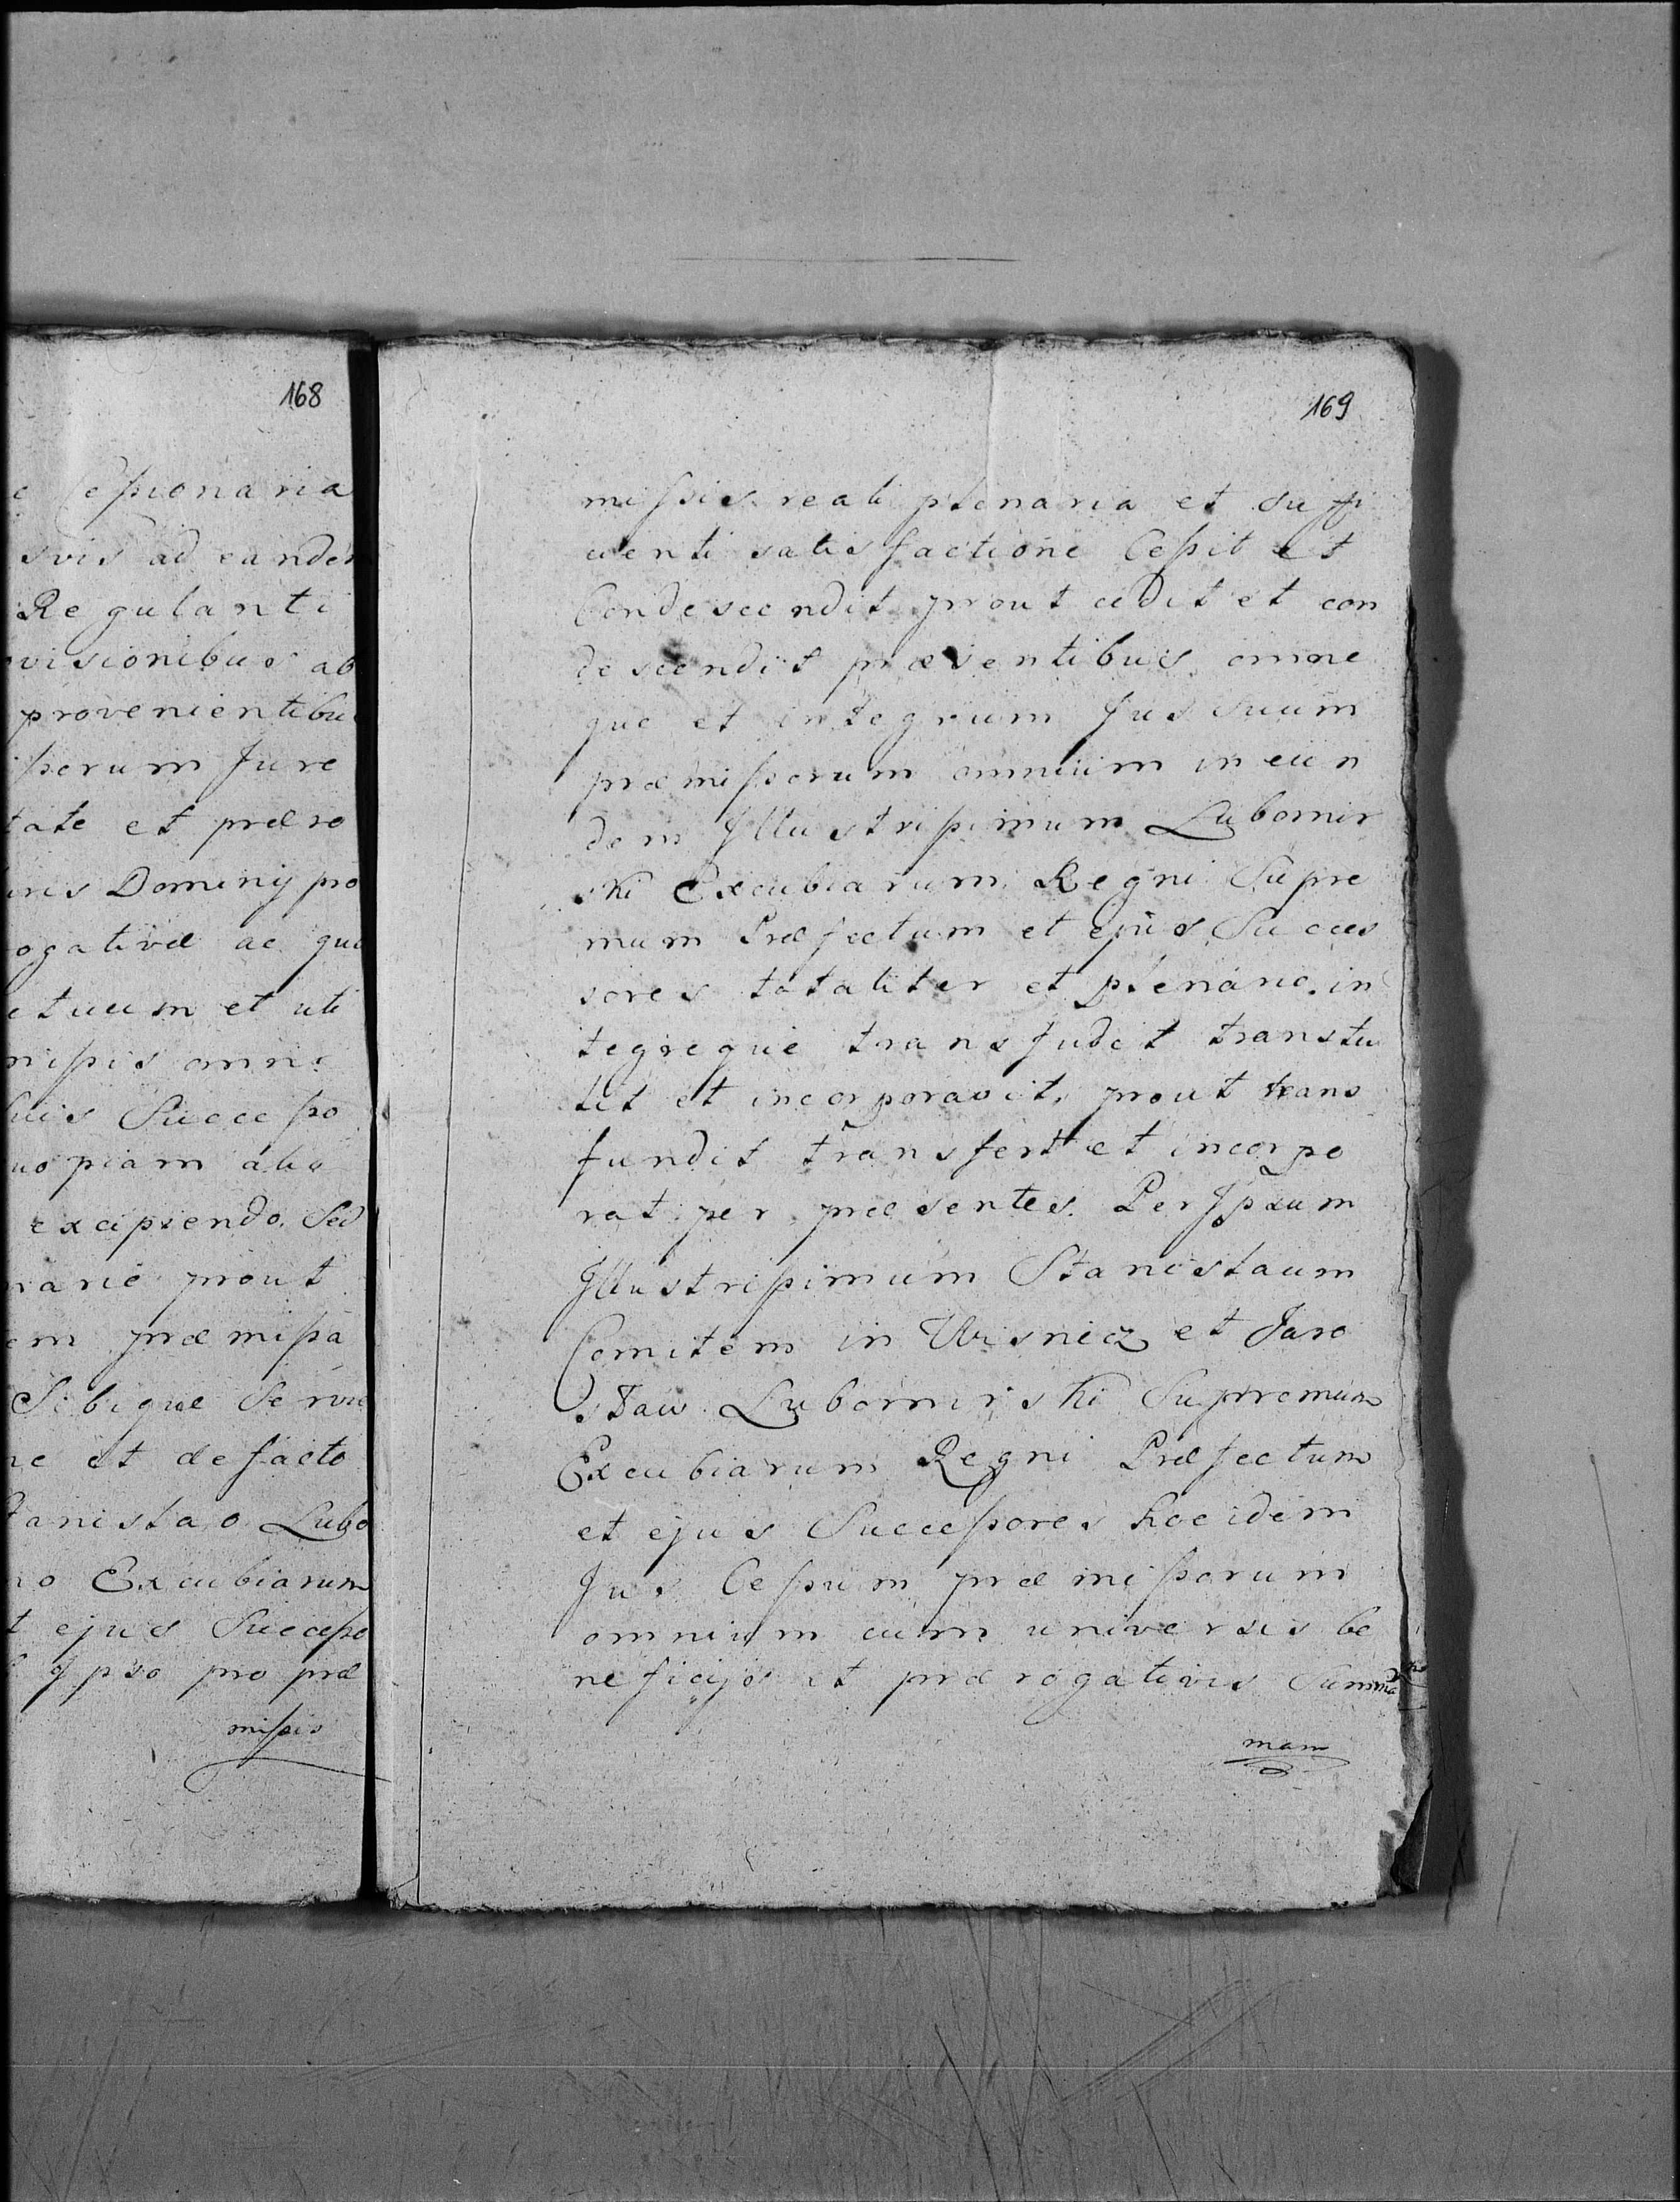 168
Cessionaria
svis ad eandem
Regulanti
visionibus ab
provenientibu
ssorum Jure
tate et præro
Dominij pro
ogativæ ac quo
ctuum et uti
missis omni
suis Successo
uo piam alio
excipiendo. Sed
narie prout
em præmissa
Sibique Servie
ne et de facto
Stanislao Lubo
mo Excubiarum
t ejus Successo
Ipso pro præ
missis
169
missis reali plenaria et suffi
cienti satisfactione Cessit et
Condescendit prout cedit et con
descendit præsentibus omne
que et integrum Jus Suum
præmissorum omnium in eun
dem Illustrissimum Lubomir
ski Excubiarum Regni Supre
mum Præfectum et ejus Succes
sores totaliter et plenarie in
tegreque transfudit transtu
lit et incorporavit, prout trans
fundit transfert et incorpo
rat per præsentes. Per Ipsum
Illustrissimum Stanislaum
Comitem in Wisnicz et Jaro
slaw Lubomirski Supremum
Excubiarum Regni Præfectum
et ejus Successores hoc idem
Jus Cessum præmissorum
omnium cum universis be
neficijs et prærogativis Summa
mam